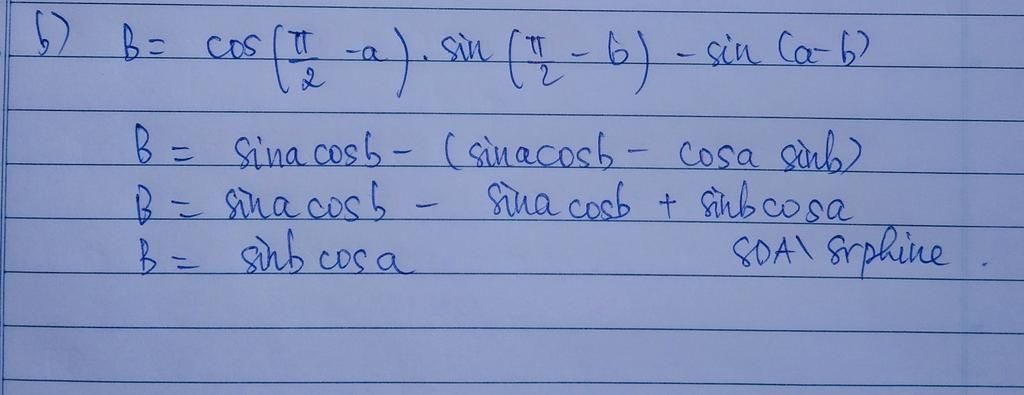 b) B = cos(π/2 - a). sin(π/2 - b) - sin(a-b)
B = sinacosb - (sinacosb - cosa sinb)
B = sinacosb - sinacosb + sinbcosa
B = sinb cosa SOA\ Srphine.